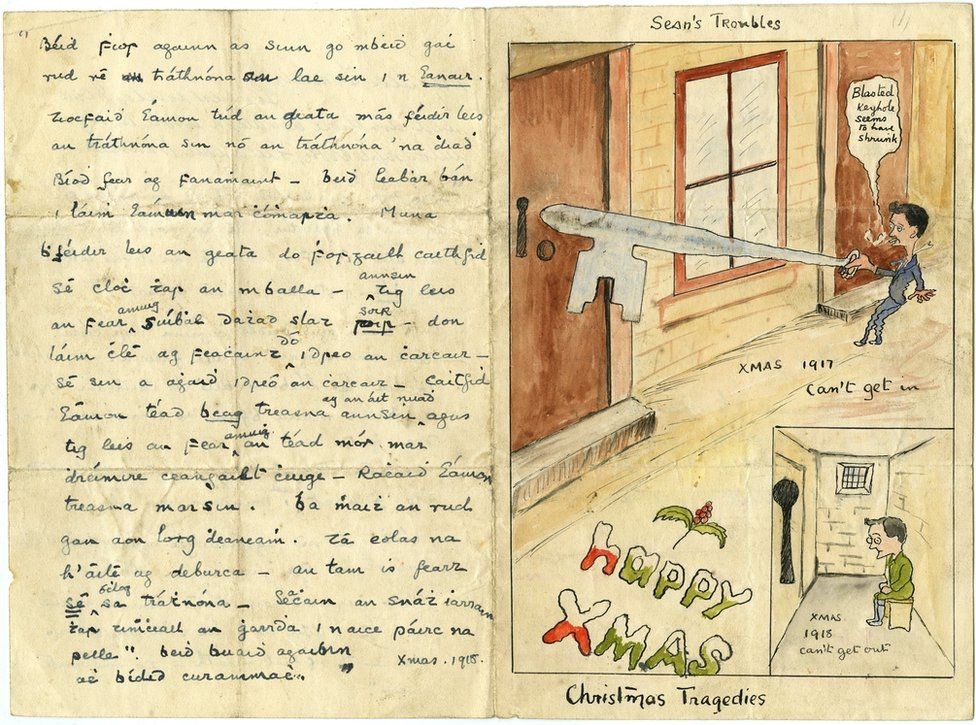 Béiḋ fios againn as sinn go mbeiḋ gaċ
rud ré tráṫnóna lae sin i n Eanair.
Tiocfaiḋ Éamon tríd an geata más féidir leis
an tráṫnóna sin nó an tráṫnóna 'na ḋiaḋ
Bíoḋ fear ag fanaṁaint — beiḋ leaḃar bán
i láiṁ Éamuin mar ċoṁarṫa. Muna
féidir leis an geata do fosgailt caiṫfiḋ
sé cloċ ṫar an mballa — annsin tig leis
an fear amuiġ siúḃal daṫad slat soir — don
láiṁ ċlé ag feaċaint dó i dtreo an ċarcair —
sé sin a aġaiḋ i dtreó an ċarcair — Caiṫfiḋ
Éamon téad beag treasna ag an áit nuaḋ annsin agus
tig leis an fear amuiġ an téad mór mar
dréimire ceangailt ċuige — Raċaiḋ Éamon
treasna mar sin. Ba ṁaiṫ an rud
gan aon lorg ḋéanaṁ. Tá eolas na
h'áite ag deburca — an t-am is fearr
sé sa tráṫnóna — Seaċain an snáṫ iarrain
ṫar timċeall an ġarrḋa i naice páirc na
peile". beiḋ buaiḋ agaiḃ
aċ bíḋiḋ curamaċ." Xmas. 1918.
Sean's Troubles
Blasted
Keyhole
seems
to have
shrunk
XMAS 1917
Can't get in
happy
XMAS
XMAS
1918
can't get out
Christmas Tragedies